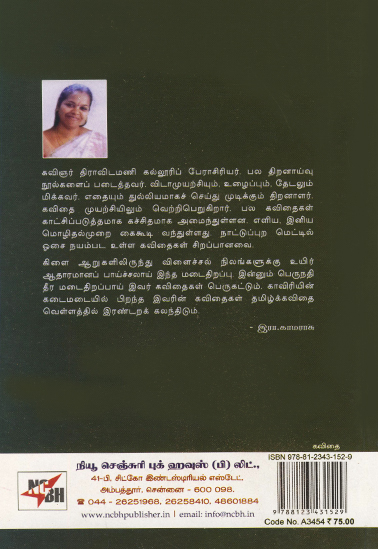 கவிஞர் திராவிடமணி கல்லூரிப் பேராசிரியர். பல திறனாய்வு
நூல்களைப் படைத்தவர். விடாமுயற்சியும், உழைப்பும், தேடலும்
மிக்கவர். எதையும் துல்லியமாகச் செய்து முடிக்கும் திறனாளர்.
கவிதை முயற்சியிலும் வெற்றிபெறுகிறார். பல கவிதைகள்
காட்சிப்படுத்தமாக கச்சிதமாக அமைந்துள்ளன. எளிய, இனிய
மொழிதல்முறை கைகூடி வந்துள்ளது. நாட்டுப்புற மெட்டில்
ஓசை நயம்பட உள்ள கவிதைகள் சிறப்பானவை.
கிளை ஆறுகளிலிருந்து விளைச்சல் நிலங்களுக்கு உயிர்
ஆதாரமானப் பாய்ச்சலாய் இந்த மடைதிறப்பு. இன்னும் பெருநதி
தீர மடைதிறப்பாய் இவர் கவிதைகள் பெருகட்டும். காவிரியின்
கடைமடையில் பிறந்த இவரின் கவிதைகள் தமிழ்க்கவிதை
வெள்ளத்தில் இரண்டறக் கலந்திடும்.
- இரா.காமராசு
கவிதை
NCBH
நியூ செஞ்சுரி புக் ஹவுஸ் (பி) லிட்.,
41-பி, சிட்கோ இண்டஸ்டிரியல் எஸ்டேட்,
அம்பத்தூர், சென்னை - 600 098.
☎ 044 - 26251968, 26258410, 48601884
www.ncbhpublisher.in | email: info@ncbh.in
ISBN 978-81-2343-152-9
9 788123 431529
Code No. A3454 ₹ 75.00